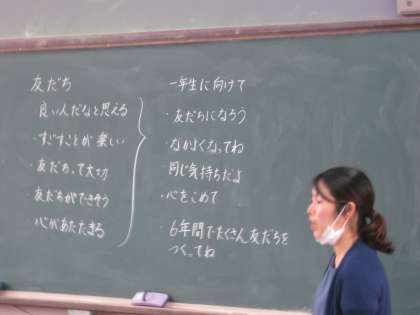 友だち
良い人だなと思える
すごすことが楽しい
友だちって大切
友だちができそう
心があたたまる
一年生に向けて
・友だちになろう
・なかよくなってね
・同じ気持ちだよ
・心をこめて
・6年間でたくさん友だちを
つくってね